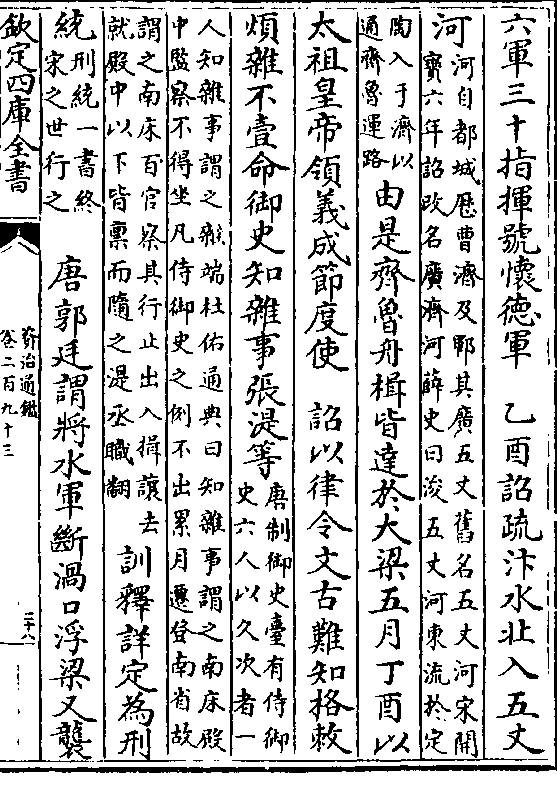 六軍三十指揮號懷德軍　乙酉詔疏汴水北入五丈
河
河自都城歷曹濟及鄆其廣五丈舊名五丈河宋開
寶六年詔改名廣濟河薛史曰浚五丈河東流於定
陶入于濟以
通齊魯運路
由是齊魯舟楫皆達於大梁五月丁酉以
太祖皇帝領義成節度使　詔以律令文古難知格敕
煩雜不壹命御史知雜事張湜等
唐制御史臺有侍御
史六人以久次者一
人知雜事謂之雜端杜佑通典曰知雜事謂之南床殿
中監察不得坐凡侍御史之例不出累月遷登南省故
謂之南床百官察其行止出入揖讓去
就殿中以下皆稟而隨之湜丞職翻
訓釋詳定為刑
統
刑統一書終
宋之世行之
唐郭廷謂將水軍斷渦口浮梁又襲
欽定四庫全書
資治通鑑
卷二百九十三
三十八